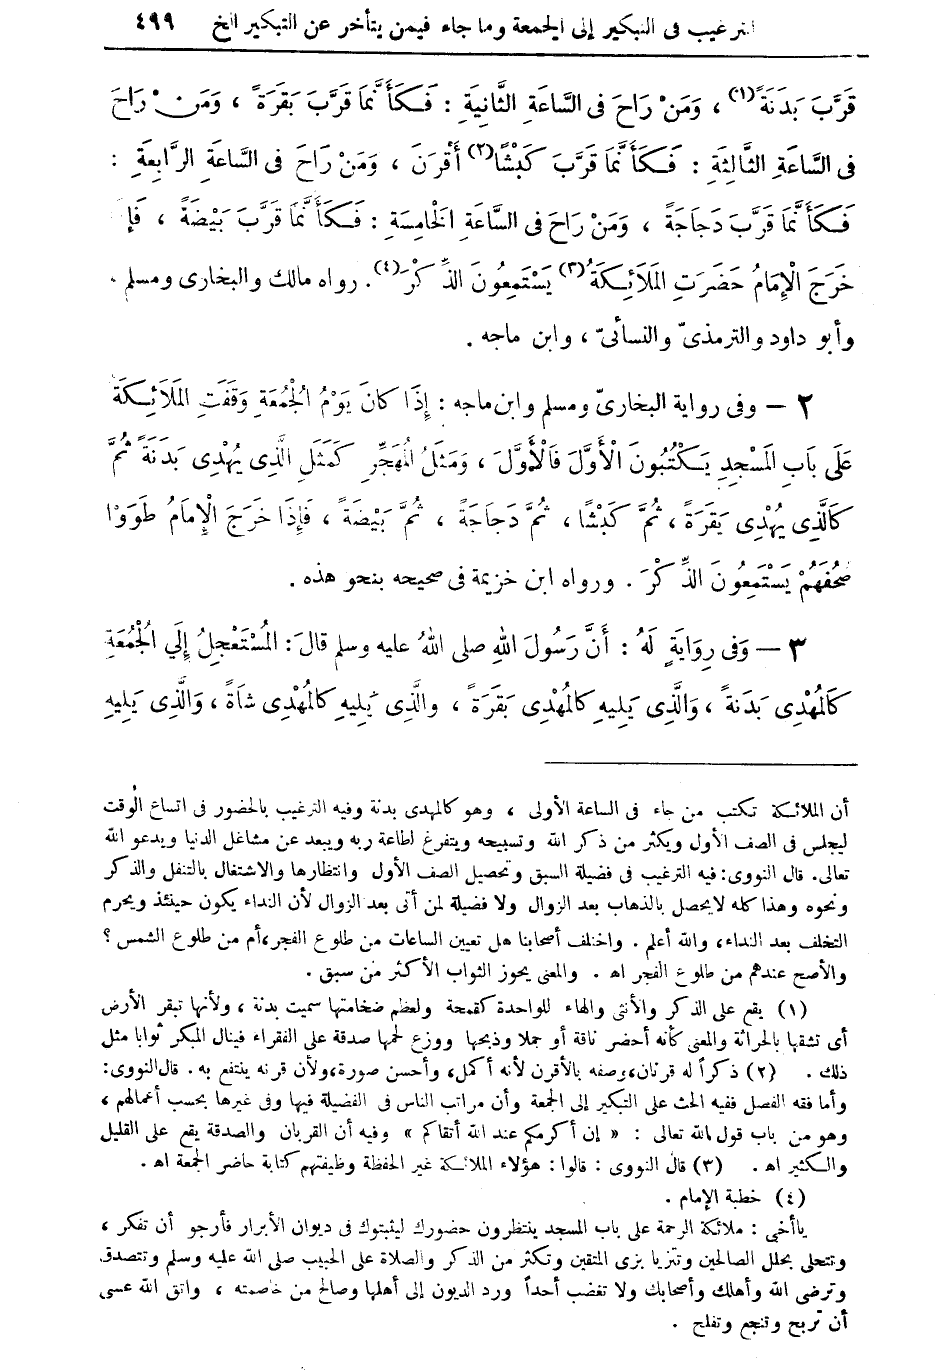 الترغيب فى التبكير إلى الجمعة وما جاء فيمن يتأخر عن التبكير الخ ٤٩٩
قَرَّبَ بَدَنَةً (١) ، وَمَنْ رَاحَ فى السَّاعَةِ الثَّانِيَةِ : فَكَأَنَّمَا قَرَّبَ بَقَرَةً ، وَمَنْ رَاحَ
فى السَّاعَةِ الثَّالِثَةِ : فَكَأَنَّمَا قَرَّبَ كَبْشًا (٢) أَقْرَنَ ، وَمَنْ رَاحَ فى السَّاعَةِ الرَّابِعَةِ :
فَكَأَنَّمَا قَرَّبَ دَجَاجَةً ، وَمَنْ رَاحَ فى السَّاعَةِ الْخَامِسَةِ : فَكَأَنَّمَا قَرَّبَ بَيْضَةً ، فَإِ
خَرَجَ الْإِمَامُ حَضَرَتِ الْمَلَائِكَةُ (٣) يَسْتَمِعُونَ الذِّكْرَ (٤) . رواه مالك والبخارى ومسلم .
وأبو داود والترمذىّ والنسائىّ ، وابن ماجه .
٢ – وفى رواية البخارىّ ومسلم وابن ماجه : إِذَا كانَ يَوْمُ الْجُمُعَةِ وَقَفَتِ الْمَلَائِكَةُ
عَلَى بَابِ الْمَسْجِدِ يَكْتُبُونَ الْأَوَّلَ فَالْأَوَّلَ ، وَمَثَلُ الْمُهَجِّرِ كَمَثَلِ الَّذِى يُهْدِى بَدَنَةً ثُمَّ
كَالَّذِى يُهْدِى بَقَرَةً ، ثُمَّ كَبْشًا ، ثُمَّ دَجَاجَةً ، ثُمَّ بَيْضَةً ، فَإِذَا خَرَجَ الْإِمَامُ طَوَوْا
صُحُفَهُمْ يَسْتَمِعُونَ الذِّكْرَ . ورواه ابن خزيمة فى صحيحه بنحو هذه .
٣ – وَفى رِوَايَةٍ لَهُ : أَنَّ رَسُولَ اللهِ صلى اللهُ عليه وسلم قالَ : الْمُسْتَعْجِلُ إِلَي الْجُمُعَةِ
كَالْمُهْدِى بَدَنَةً ، وَالَّذِى يَلِيهِ كَالْمُهْدِى بَقَرَةً ، والَّذِى يَلِيهِ كَالْمُهْدِى شَاةً ، وَالَّذِى يَلِيهِ
أن الملائكة تكتب من جاء فى الساعة الأولى ، وهو كالمهدى بدنة وفيه الترغيب بالحضور فى اتساع الوقت
ليجلس فى الصف الأول ويكثر من ذكر الله وتسبيحه ويتفرغ لطاعة ربه ويبعد عن مشاغل الدنيا ويدعو الله
تعالى. قال النووى: فيه الترغيب فى فضيلة السبق وتحصيل الصف الأول وانتظارها والاشتغال بالتنفل والذكر
ونحوه وهذا كله لايحصل بالذهاب بعد الزوال ولا فضيلة لمن أتى بعد الزوال لأن النداء يكون حينئذ ويحرم
التخلف بعد النداء، والله أعلم . واختلف أصحابنا هل تعيين الساعات من طلوع الفجر،أم من طلوع الشمس ؟
والأصح عندهم من طلوع الفجر اه . والمعنى يحوز الثواب الأكثر من سبق .
(١) يقع على الذكر والأنثى والهاء للواحدة كقمحة ولعظم ضخامتها سميت بدنة ، ولأنها تبقر الأرض
أى تشقها بالحراثة والمعنى كأنه أحضر ناقة أو جملا وذبحها ووزع لحمها صدقة على الفقراء فينال المبكر ثوابا مثل
ذلك . (٢) ذكراً له قرنان،وصفه بالأقرن لأنه أكمل، وأحسن صورة،ولأن قرنه ينتفع به . قال النووى:
وأما فقه الفصل ففيه الحث على التبكير إلى الجمعة وأن مراتب الناس فى الفضيلة فيها وفى غيرها بحسب أعمالهم ،
وهو من باب قول الله تعالى : « إن أكرمكم عند الله أتقاكم » وفيه أن القربان والصدقة يقع على القليل
والكثير اه . (٣) قال النووى : قالوا : هؤلاء الملائكة غير الحفظة وظيفتهم كتابة حاضر الجمعة اه .
(٤) خطبة الإمام .
ياأخى : ملائكة الرحمة على باب المسجد ينتظرون حضورك ليثبتوك فى ديوان الأبرار فأرجو أن تفكر ،
وتتحلى بحلل الصالحين وتتزيا بزى المتقين وتكثر من الذكر والصلاة على الحبيب صلى الله عليه وسلم وتتصدق
وترضى الله وأهلك وأصحابك ولا تغضب أحداً ورد الديون إلى أهلها وصالح من خاصمته ، واتق الله عسى
أن تربح وتنجح وتفلح .